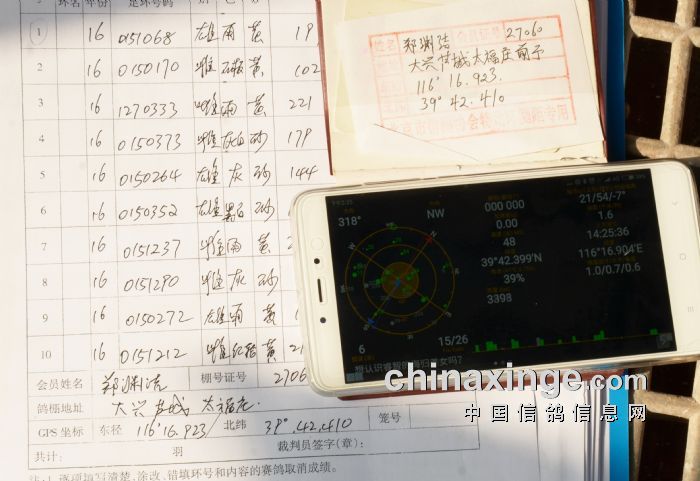 环名 年份 足环号码
1 16 0151068 雄 雨 黄 19
2 16 0150170 雌 黄 102
3 16 1270333 雌 雨 黄 221
4 16 0150373 雌 灰白 砂 179
5 16 0150264 雄 灰 砂 144
6 16 0150352 雄 砂
7 16 0151237 雌 雨 黄 2
8 16 0151290 雌 灰 砂
9 16 0150272 雄 雨 黄 1
10 16 0151212 雌 黄 21
会员姓名 郑渊洁 棚号证号 2706
鸽棚地址 大兴 太福庄
GPS坐标 东经 116°16.923 北纬 39°.42.410 笼号
共计: 羽 裁判员签字(章):
注:1.逐项填写清楚,涂改、错填环号和内容的赛鸽取消成绩。
姓名 郑渊洁 会员证号 27060
大兴 太福庄前子
116° 16.923.
39°.42.410
318°
NW
000 000
0.00
48
39°42.399'N
39%
3398
21/54/-7°
1.6
14:25:36
116°16.904'E
1.0/0.7/0.6
6
15/26
chinaxinge.com
中国信鸽信息网